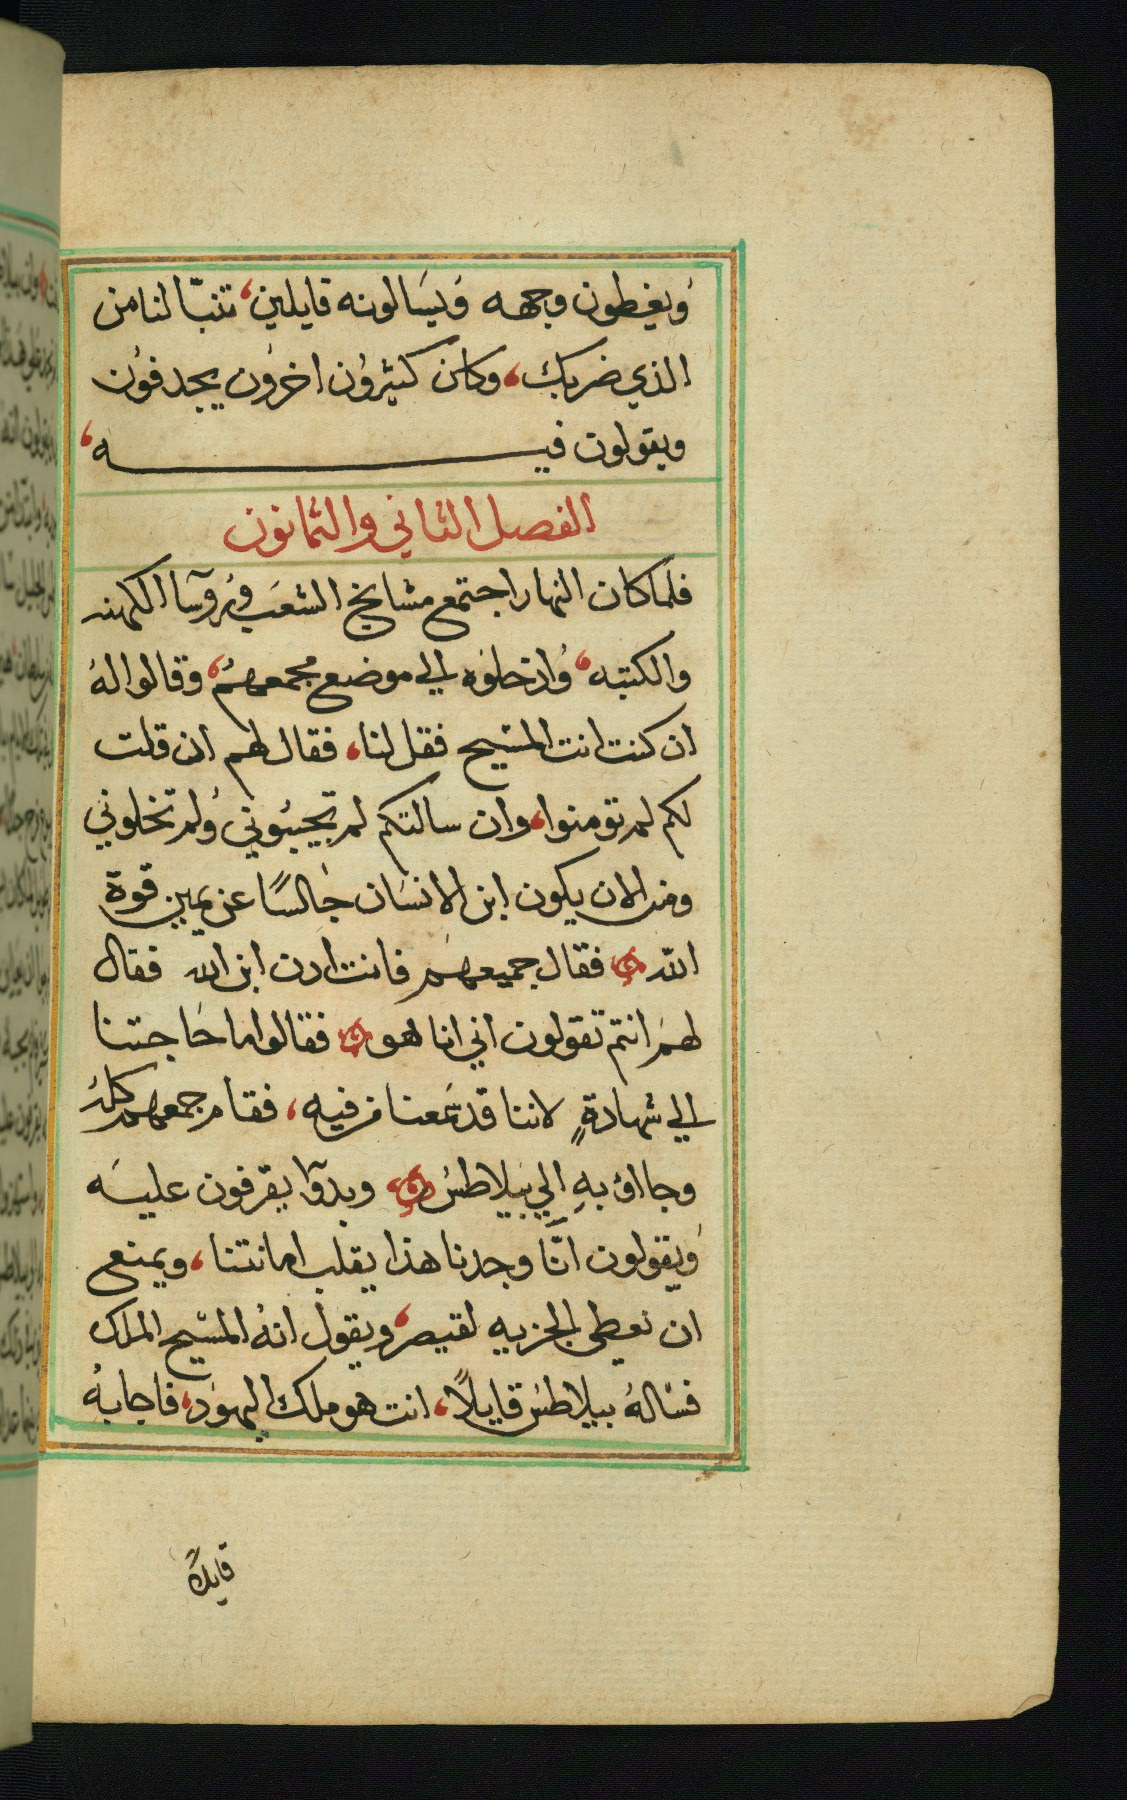 ويغطون وجهه ويسالونه قايلين، تنبّا لنا من
الذي ضربك، وكان كثيرون اخرون يجدفون
ويقولون فيه،
الفصل الثاني والثمانون
فلما كان النهار اجتمع مشايخ الشعب وروسا الكهنه
والكتبه، وادخلوه الي موضع مجمعهم، وقالوا لهُ
ان كنت انت المسيح فقل لنا، فقال لهم ان قلت
لكم لم تومنوا، وان سالتكم لم تجيبوني ولم تخلوني
ومن الان يكون ابن الانسان جالسًا عن يمين قوة
الله فقال جميعهم فانت ادن ابن الله فقال
لهم انتم تقولون اني انا هو فقالوا ما حاجتنا
الي شهادةٍ لاننا قد سمعنا من فيه، فقام جمعهم كله
وجااوُ بهِ الي بيلاطس، وبدوا يقرفون عليه
ويقولون انّا وجدنا هذا يقلب امانتنا، ويمنع
ان نعطي الجزيه لقيصر، ويقول انهُ المسيح الملك
فسالهُ بيلاطس قايلاً، انت هو ملك اليهود، فاجابهُ
قايلاً